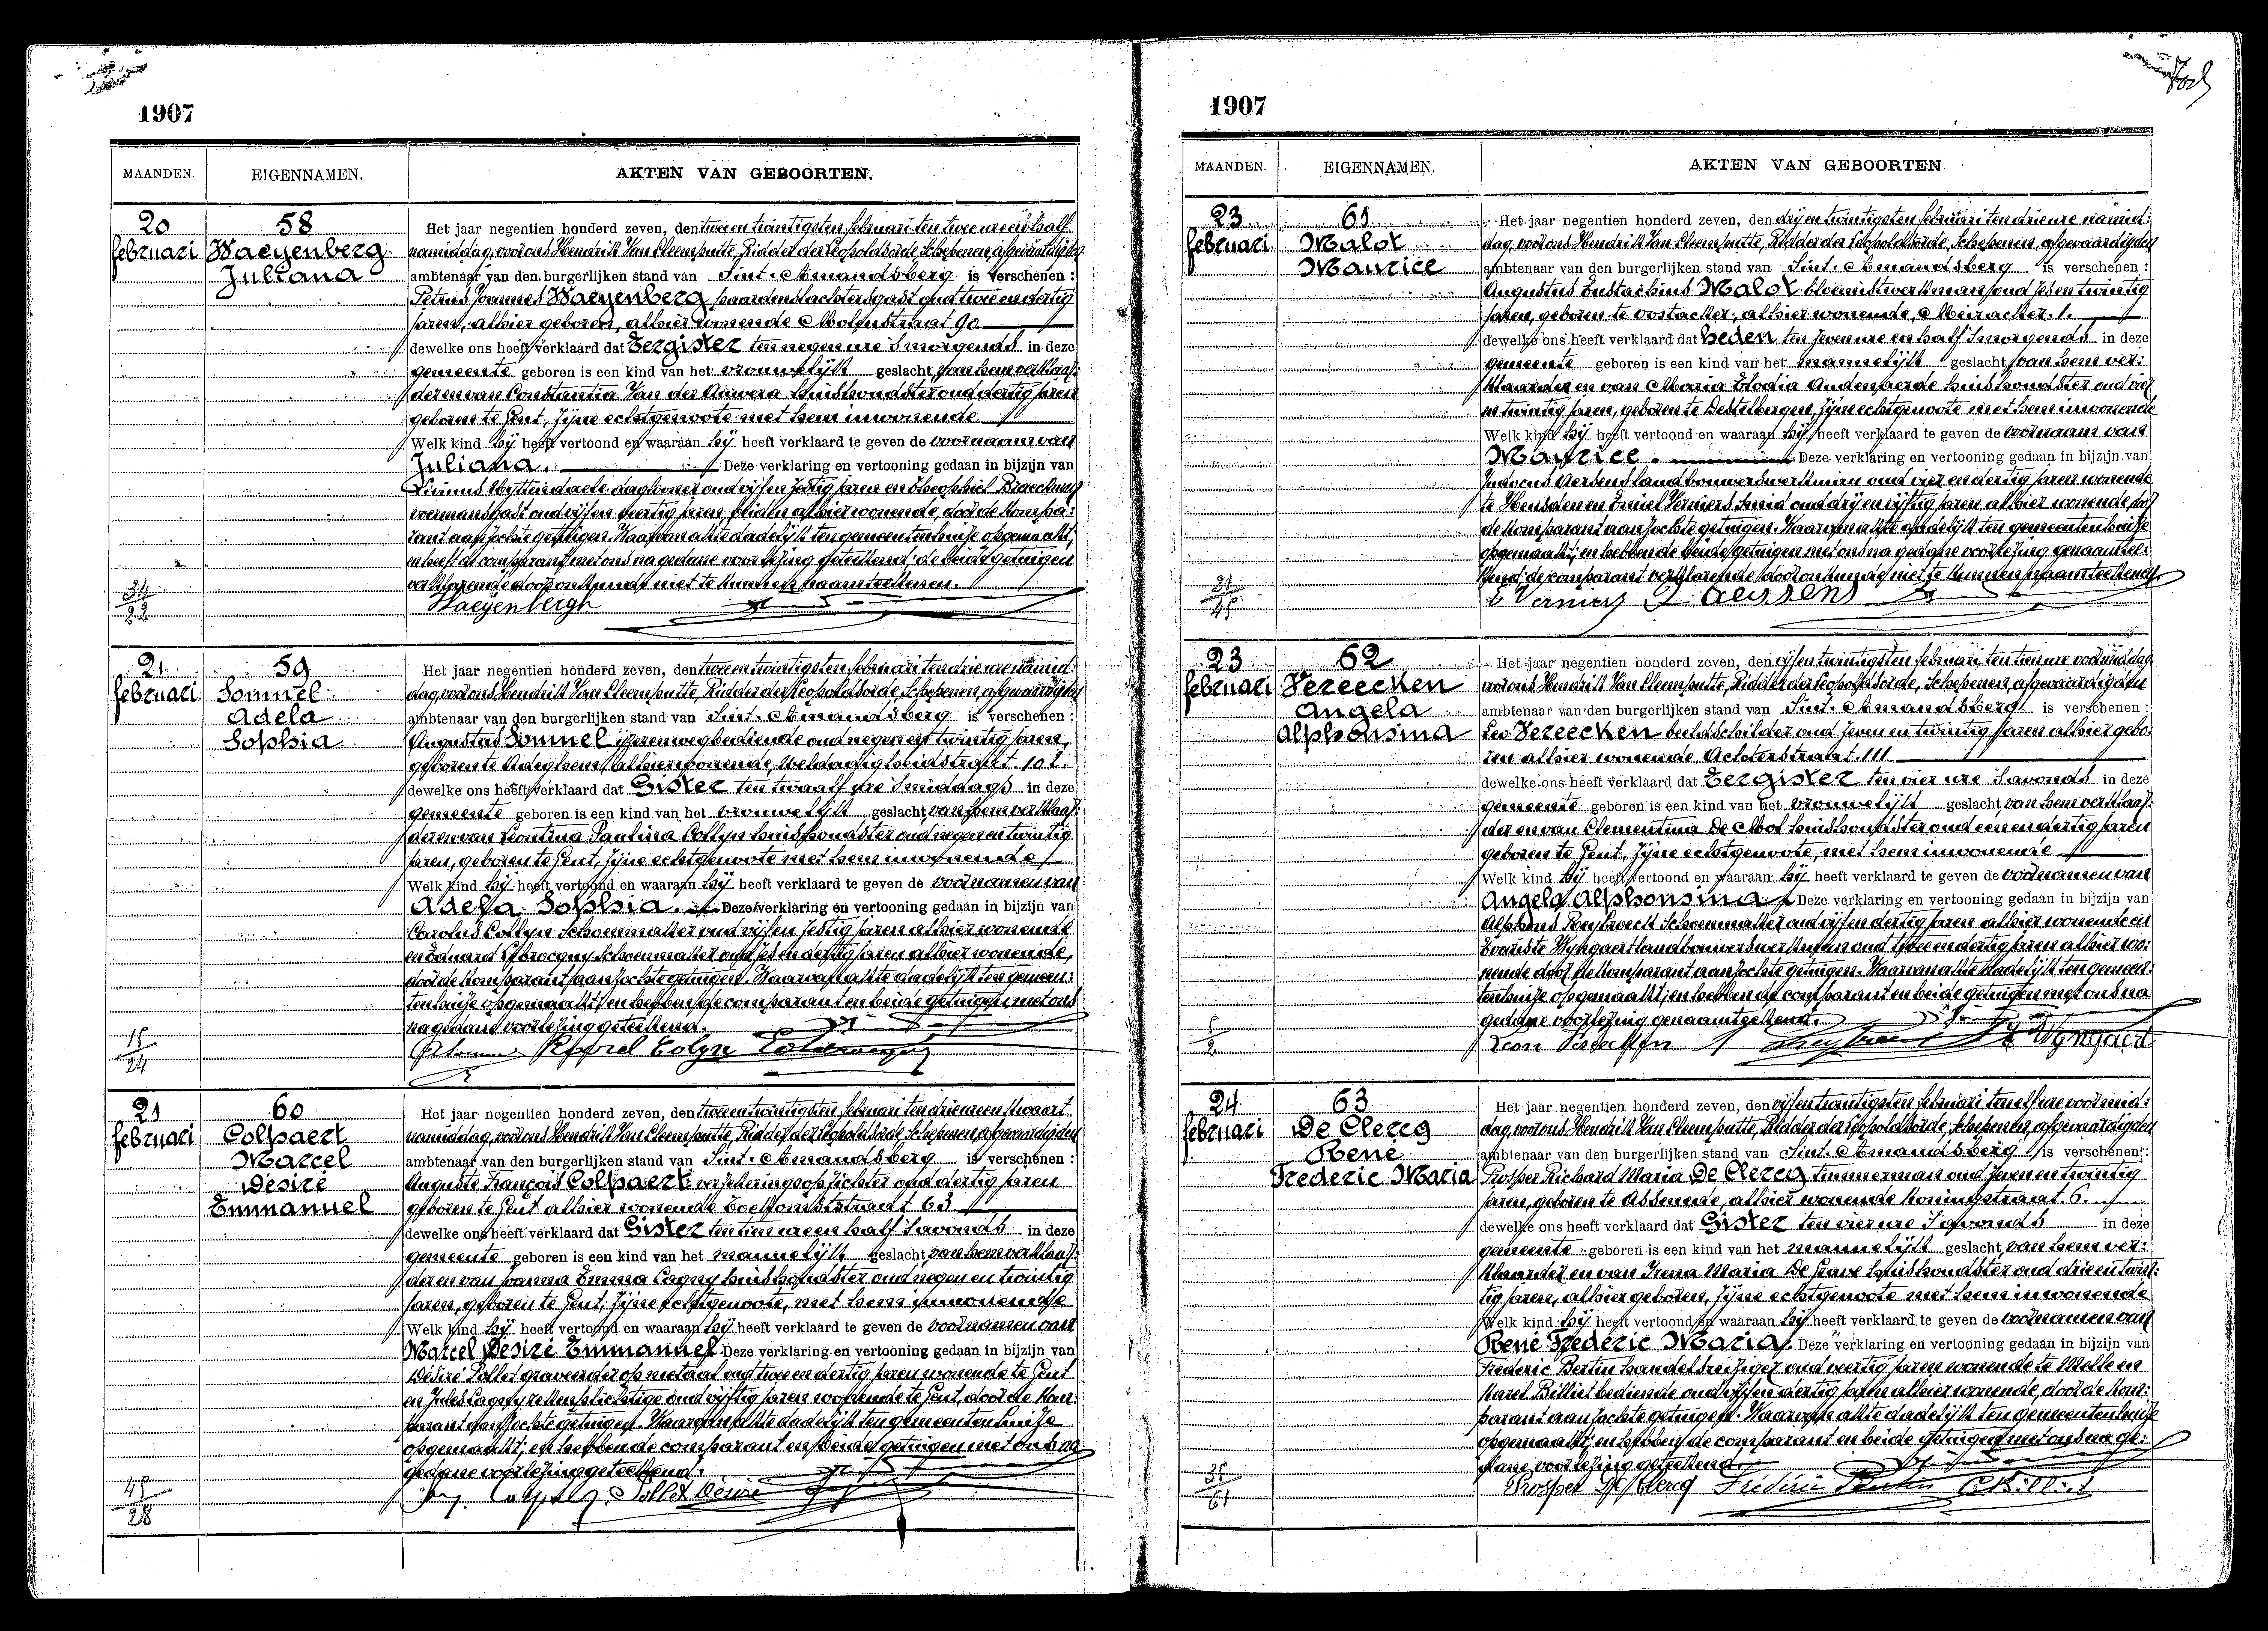 1907
MAANDEN. EIGENNAMEN. AKTEN VAN GEBOORTEN.
20 februari
58
Waeyenberg
Juliana
Het jaar negentien honderd zeven, den twee en twintigsten februari ten twee ure en half
namiddag, voor ons Hendrik Van Cleemputte, Ridder der Leopoldsorde, Schepenen, afgevaardigden
ambtenaar van den burgerlijken stand van Sint-Amandsberg is verschenen :
Petrus Joannes Waeyenberg, paardenslachtersgast oud twee en dertig
jaren, alhier geboren, alhier wonende Molenstraat 90
dewelke ons heeft verklaard dat Eergister ten negen ure 's morgends in deze
gemeente geboren is een kind van het vrouwelijk geslacht van hem verklaar-
der en van Constantia Van der Auwera huishoudster oud dertig jaren
geboren te Gent, zijne echtgenoote met hem inwonende
Welk kind hij heeft vertoond en waaraan hij heeft verklaard te geven de voornaam van
Juliana. Deze verklaring en vertooning gedaan in bijzijn van
Livinus Uyttendaele daglooner oud vijf en zestig jaren en Theophiel Braeckman
voermansgast oud vijf en veertig jaren, beiden alhier wonende, door de kompa-
rant aanzochte getuigen. Waarvan akte dadelijk ten gemeentenhuize opgemaakt,
en heeft de comparant met ons na gedane voorlezing geteekend; de beide getuigen
verklarende door onkunde niet te kunnen naamteekenen.
Waeyenbergh
34
22
21 februari
59
Sommel
Adela
Sophia
Het jaar negentien honderd zeven, den twee en twintigsten februari ten drie ure namid-
dag, voor ons Hendrik Van Cleemputte, Ridder der Leopoldsorde, Schepenen, afgevaardigden
ambtenaar van den burgerlijken stand van Sint-Amandsberg is verschenen :
Augustus Sommel ijzerenwegbediende oud negen en twintig jaren,
geboren te Adeghem, alhier wonende, Weldadigheidstraat 101.
dewelke ons heeft verklaard dat Gister ten twaalf ure 's middags in deze
gemeente geboren is een kind van het vrouwelijk geslacht van hem verklaar-
der en van Leontina Paulina Collyn huishoudster oud negen en twintig
jaren, geboren te Gent, zijne echtgenoote met hem inwonende
Welk kind hij heeft vertoond en waaraan hij heeft verklaard te geven de voornamen van
Adela Sophia. Deze verklaring en vertooning gedaan in bijzijn van
Carolus Collyn Schoenmaker oud vijf en zestig jaren alhier wonende
en Eduard schoenmaker oud zes en dertig jaren alhier wonende,
door de komparant aanzochte getuigen. Waarvan akte dadelijk ten gemeen-
tenhuize opgemaakt, en hebben de comparant en beide getuigen met ons
na gedane voorlezing geteekend.
15
24
21 februari
60
Colpaert
Marcel
Désiré
Emmanuel
Het jaar negentien honderd zeven, den twee en twintigsten februari ten drie ure en kwaart
namiddag, voor ons Hendrik Van Cleemputte, Ridder der Leopoldsorde, Schepenen, afgevaardigden
ambtenaar van den burgerlijken stand van Sint-Amandsberg is verschenen :
Auguste François Colpaert verzekeringsopzichter oud dertig jaren
geboren te Gent alhier wonende Toekomststraat 63
dewelke ons heeft verklaard dat Gister ten tien ure en half 's avonds in deze
gemeente geboren is een kind van het mannelijk geslacht van hem verklaar-
der en van Joanna Emma Cagny huishoudster oud negen en twintig
jaren, geboren te Gent, zijne echtgenoote, met hem inwonende
Welk kind hij heeft vertoond en waaraan hij heeft verklaard te geven de voornamen van
Marcel Désiré Emmanuel Deze verklaring en vertooning gedaan in bijzijn van
Désiré Pollet graveerder op metaal oud twee en dertig jaren wonende te Gent
en Jules Cagny oud vijftig jaren wonende te Gent, door de kom-
parant aanzochte getuigen. Waarvan akte dadelijk ten gemeentenhuize
opgemaakt; en hebben de comparant en beide getuigen met ons na
gedane voorlezing geteekend.
Pollet Désiré
45
28
1907
MAANDEN. EIGENNAMEN. AKTEN VAN GEBOORTEN
23 februari
61
Malot
Maurice
Het jaar negentien honderd zeven, den drij en twintigsten februari ten drie ure namid-
dag, voor ons Hendrik Van Cleemputte, Ridder der Leopoldsorde, Schepenen, afgevaardigden
ambtenaar van den burgerlijken stand van Sint-Amandsberg is verschenen :
Augustus Eustachius Malot bloemistwerkman oud zes en twintig
jaren, geboren te Oostacker, alhier wonende, Meiracker. 1.
dewelke ons heeft verklaard dat heden ten zeven ure en half 's morgends in deze
gemeente geboren is een kind van het mannelijk geslacht van hem ver-
klaarder en van Maria Elodia Audenaerde huishoudster oud vier
en twintig jaren, geboren te Destelbergen, zijne echtgenoote met hem inwonende
Welk kind hij heeft vertoond en waaraan hij heeft verklaard te geven de voornaam van
Maurice. Deze verklaring en vertooning gedaan in bijzijn van
Judocus Aersens landbouwerswerkman oud vier en dertig jaren wonende
te Heusden en Emiel Verniers smid oud drij en vijftig jaren alhier wonende door
de komparant aanzochte getuigen. Waarvan akte dadelijk ten gemeentenhuize
opgemaakt; en hebben de beide getuigen met ons na gedane voorlezing genaamtee-
kend; de comparant verklarende door onkunde niet te kunnen naamteekenen.
E Verniers J Aerssens
21
45
23 februari
62
Vereecken
Angela
Alphonsina
Het jaar negentien honderd zeven, den vijf en twintigsten februari, ten tien ure voormiddag,
voor ons Hendrik Van Cleemputte, Ridder der Leopoldsorde, Schepenen, afgevaardigden
ambtenaar van den burgerlijken stand van Sint-Amandsberg is verschenen :
Leo Vereecken beeldschilder oud zeven en twintig jaren alhier gebo-
ren alhier wonende Achterstraat. 111
dewelke ons heeft verklaard dat Eergister ten vier ure 's avonds in deze
gemeente geboren is een kind van het vrouwelijk geslacht van hem verklaar-
der en van Clementina De Mol huishoudster oud een en dertig jaren
geboren te Gent, zijne echtgenoote, met hem inwonende
Welk kind hij heeft vertoond en waaraan hij heeft verklaard te geven de voornamen van
Angela Alphonsina Deze verklaring en vertooning gedaan in bijzijn van
Alphons Reybroeck Schoenmaker oud vijf en dertig jaren alhier wonende en
Evariste Wyngaert landbouwerswerkman oud twee en dertig jaren alhier wo-
nende door de komparant aanzochte getuigen. Waarvan akte dadelijk ten gemeen-
tenhuize opgemaakt; en hebben de comparant en beide getuigen met ons na
gedane voorlezing genaamteekend.
Leon Vereecken Wyngaert
5
2
24 februari
63
De Clercq
René
Frederic Maria
Het jaar negentien honderd zeven, den vijf en twintigsten februari ten elf ure voormid-
dag, voor ons Hendrik Van Cleemputte, Ridder der Leopoldsorde, Schepenen, afgevaardigden
ambtenaar van den burgerlijken stand van Sint-Amandsberg is verschenen :
Prosper Richard Maria De Clercq timmerman oud zeven en twintig
jaren, geboren te Assenede, alhier wonende Koningstraat 6.
dewelke ons heeft verklaard dat Gister ten vier ure 's avonds in deze
gemeente geboren is een kind van het mannelijk geslacht van hem ver-
klaarder en van Irena Maria De Grave huishoudster oud drie en twin-
tig jaren, alhier geboren, zijne echtgenoote met hem inwonende
Welk kind hij heeft vertoond en waaraan hij heeft verklaard te geven de voornamen van
René Frederic Maria. Deze verklaring en vertooning gedaan in bijzijn van
Frederic Bertin handelsreiziger oud veertig jaren wonende te Melle en
Karel Billiet bediende oud vijf en dertig jaren alhier wonende, door de kom-
parant aanzochte getuigen. Waarvan akte dadelijk ten gemeentenhuize
opgemaakt; en hebben de comparant en beide getuigen met ons na ge-
dane voorlezing geteekend.
Prosper De Clercq Frédéric Bertin C Billiet
35
61